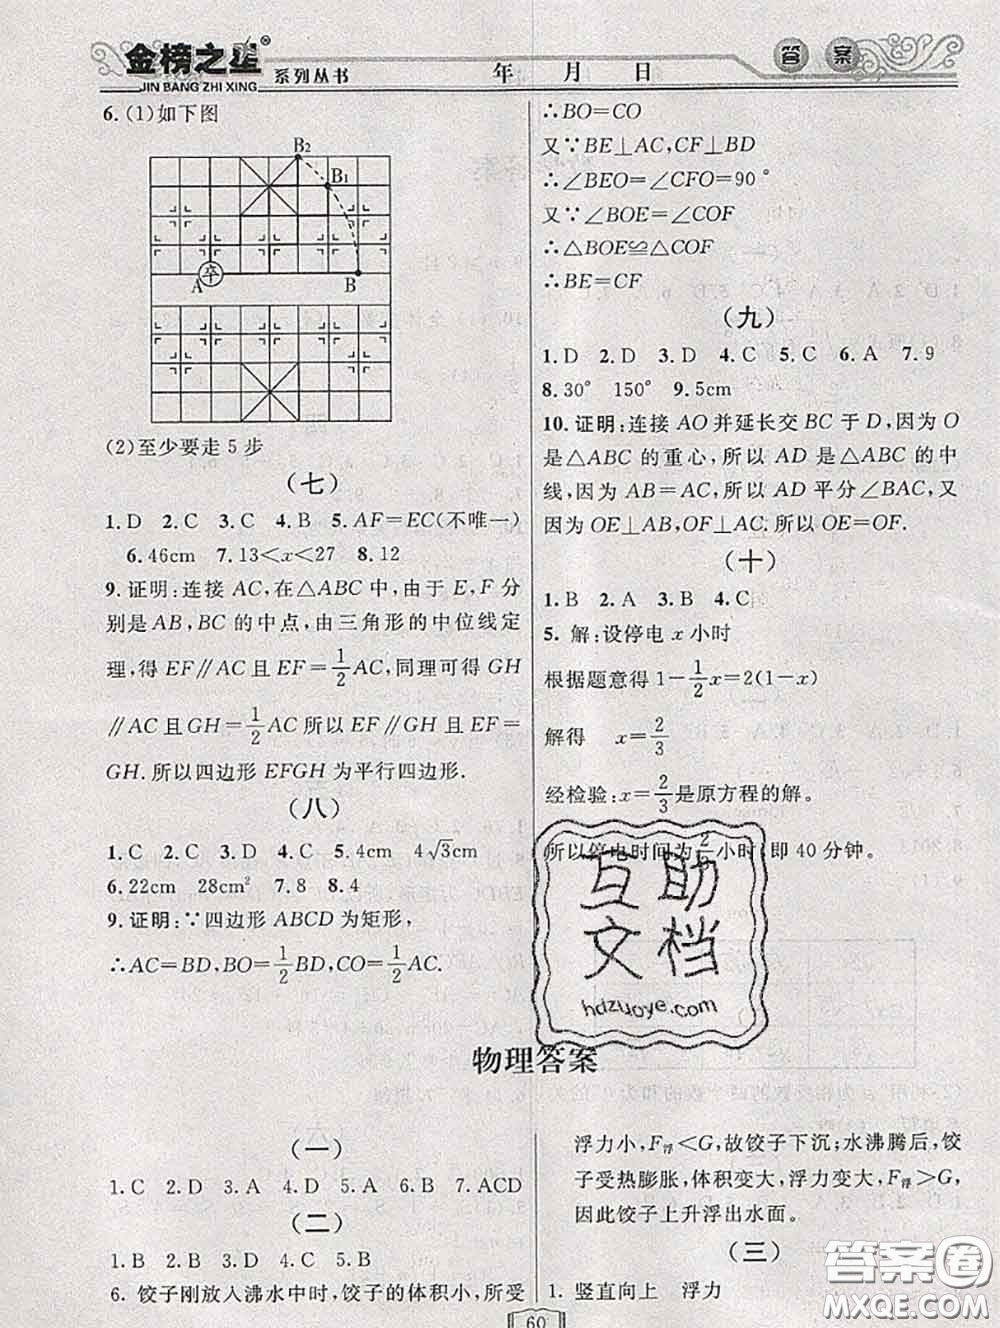 金榜之星®
JIN BANG ZHI XING
系列丛书
年 月 日
答 案
6.(1)如下图
B₂
B₁
卒
A
B
(2)至少要走 5 步
(七)
1.D 2.C 3.C 4.B 5.AF=EC(不唯一)
6.46cm 7.13<x<27 8.12
9.证明:连接 AC,在△ABC 中,由于 E,F 分
别是 AB,BC 的中点,由三角形的中位线定
理,得 EF∥AC 且 EF=1/2AC,同理可得 GH
∥AC 且 GH=1/2AC 所以 EF∥GH 且 EF=
GH.所以四边形 EFGH 为平行四边形.
(八)
1.C 2.C 3.D 4.C 5.4cm 4√3cm
6.22cm 28cm² 7.8 8.4
9.证明:∵四边形 ABCD 为矩形,
∴AC=BD,BO=1/2BD,CO=1/2AC.
∴BO=CO
又∵BE⊥AC,CF⊥BD
∴∠BEO=∠CFO=90°
又∵∠BOE=∠COF
∴△BOE≌△COF
∴BE=CF
(九)
1.D 2.D 3.D 4.C 5.C 6.A 7.9
8.30° 150° 9.5cm
10.证明:连接 AO 并延长交 BC 于 D,因为 O
是△ABC 的重心,所以 AD 是△ABC 的中
线,因为 AB=AC,所以 AD 平分∠BAC,又
因为 OE⊥AB,OF⊥AC.所以 OE=OF.
(十)
1.B 2.A 3.B 4.C
5. 解:设停电 x 小时
根据题意得 1-1/2x=2(1-x)
解得 x=2/3
经检验:x=2/3是原方程的解。
所以停电时间为2/3小时,即 40 分钟。
互助
文档
hdzuoye.com
物理答案
(一)
1.C 2.D 3.A 4.D 5.A 6.B 7.ACD
(二)
1.B 2.B 3.D 4.C 5.B
6. 饺子刚放入沸水中时,饺子的体积小,所受
浮力小,F浮<G,故饺子下沉;水沸腾后,饺
子受热膨胀,体积变大,浮力变大,F浮>G,
因此饺子上升浮出水面。
(三)
1. 竖直向上 浮力
60
答案圈
MXQE.COM